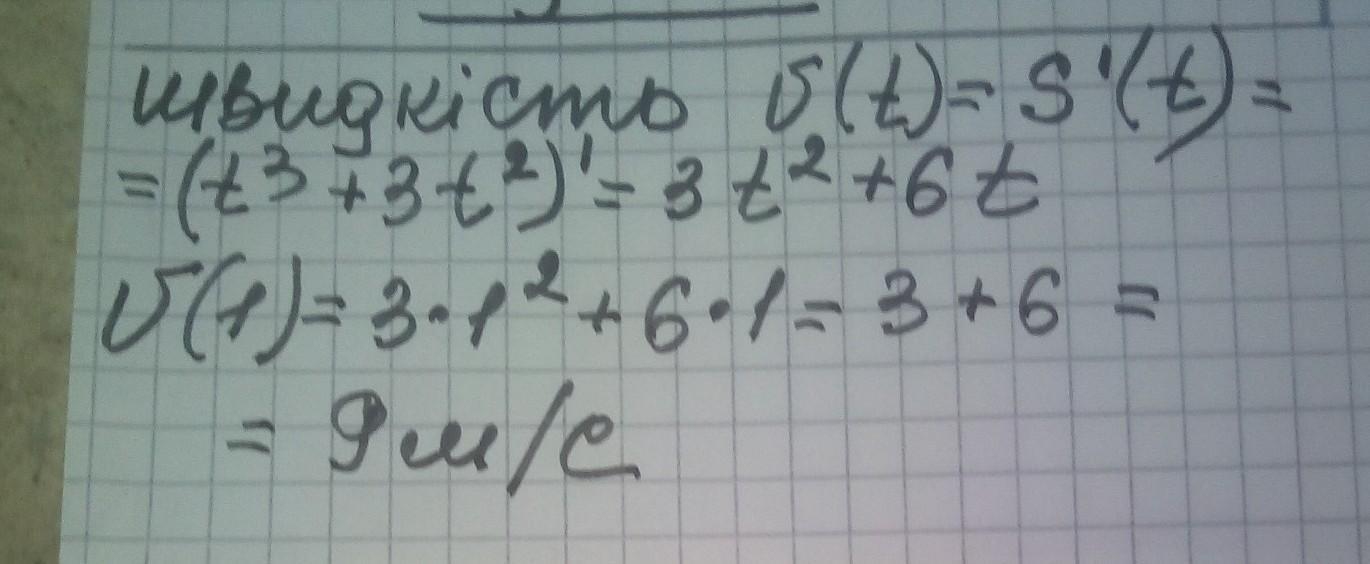 швидкість v(t) = S'(t) =
= (t³ + 3t²)' = 3t² + 6t
v(1) = 3·1² + 6·1 = 3 + 6 =
= 9 м/с